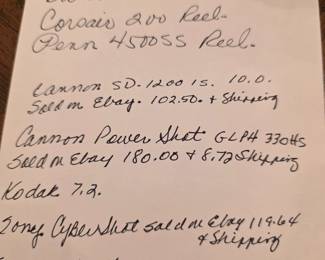 Corsair 200 Reel.
Penn 4500SS Reel.
Cannon SD-1200 IS. 10.0.
Sold on Ebay. 102.50. + Shipping
Cannon Power Shot GLPH 330HS
Sold on Ebay 180.00 + 8.72 Shipping
Kodak 7.2.
Sony CyberShot sold on Ebay 119.64
+ Shipping